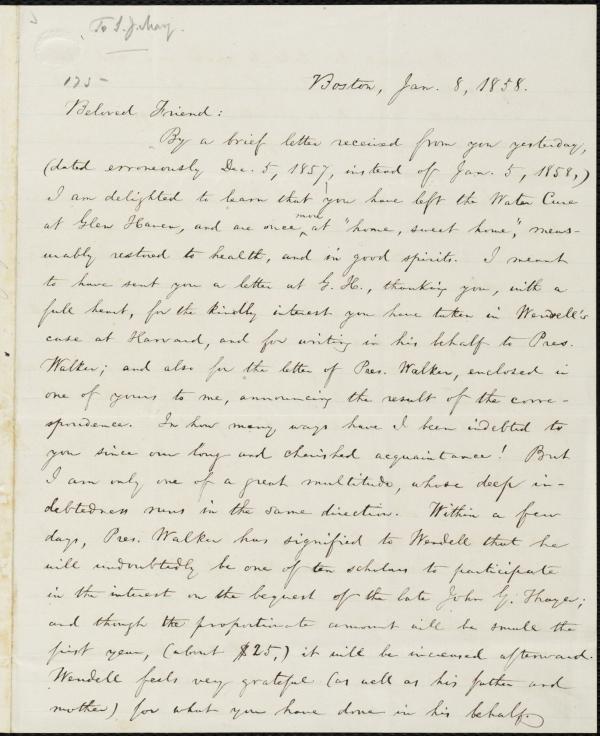 To S. J. May.
125-
Boston, Jan. 8, 1858.
Beloved Friend:
By a brief letter received from you yesterday,
(dated erroneously Dec. 5, 1857, instead of Jan. 5, 1858,)
I am delighted to learn that you have left the Water Cure
at Glen Haven, and are once more at "home, sweet home," meas-
urably restored to health, and in good spirits. I meant
to have sent you a letter at G. H., thanking you, with a
full heart, for the kindly interest you have taken in Wendell's
case at Harvard, and for writing in his behalf to Pres.
Walker; and also for the letter of Pres. Walker, enclosed in
one of yours to me, announcing the result of the corre-
spondence. In how many ways have I been indebted to
you since our long and cherished acquaintance! But
I am only one of a great multitude, whose deep in-
debtedness runs in the same direction. Within a few
days, Pres. Walker has signified to Wendell that he
will undoubtedly be one of ten scholars to participate
in the interest on the bequest of the late John G. Thayer;
and though the proportionate amount will be small the
first year, (about $25,) it will be increased afterward.
Wendell feels very grateful (as well as his father and
mother) for what you have done in his behalf.